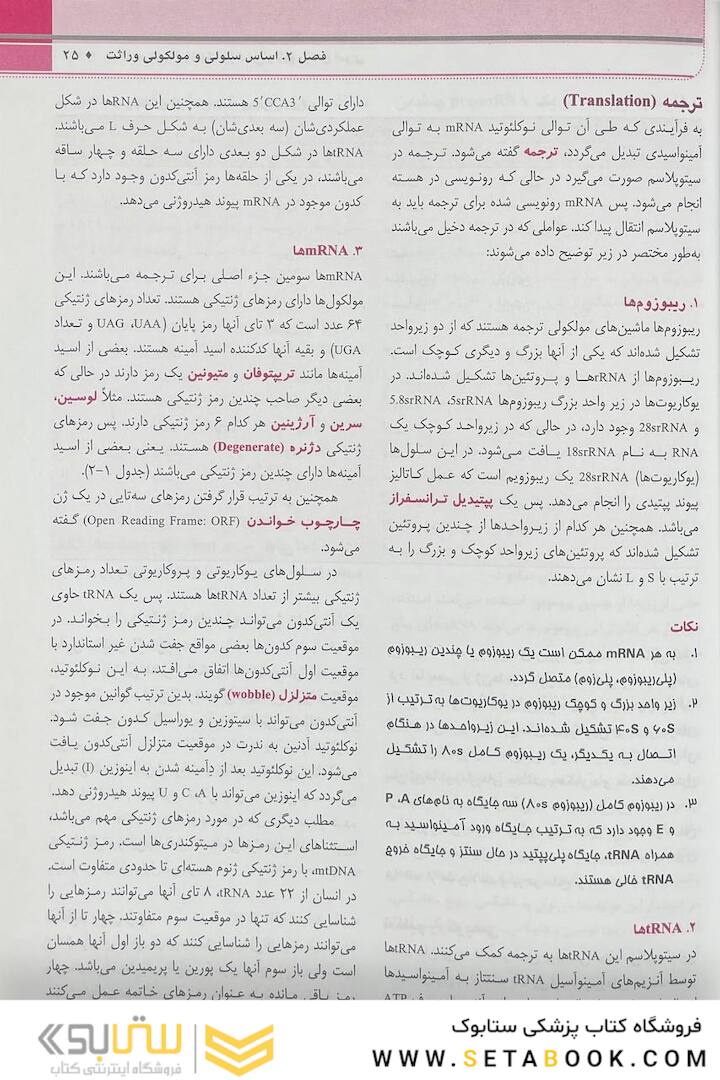 فصل ۲. اساس سلولی و مولکولی وراثت ♦ ۲۵
ترجمه (Translation)
به فرآیندی که طی آن توالی نوکلئوتید mRNA به توالی
آمینواسیدی تبدیل می‌گردد، ترجمه گفته می‌شود. ترجمه در
سیتوپلاسم صورت می‌گیرد در حالی که رونویسی در هسته
انجام می‌شود. پس mRNA رونویسی شده برای ترجمه باید به
سیتوپلاسم انتقال پیدا کند. عواملی که در ترجمه دخیل می‌باشند
به‌طور مختصر در زیر توضیح داده می‌شوند:
۱. ریبوزوم‌ها
ریبوزوم‌ها ماشین‌های مولکولی ترجمه هستند که از دو زیرواحد
تشکیل شده‌اند که یکی از آنها بزرگ و دیگری کوچک است.
ریبوزوم‌ها از rRNAها و پروتئین‌ها تشکیل شده‌اند. در
یوکاریوت‌ها در زیر واحد بزرگ ریبوزوم‌ها 5srRNA، 5.8srRNA
و 28srRNA وجود دارد، در حالی که در زیرواحد کوچک یک
RNA به نام 18srRNA یافت می‌شود. در این سلول‌ها
(یوکاریوت‌ها) 28srRNA یک ریبوزویم است که عمل کاتالیز
پیوند پپتیدی را انجام می‌دهد. پس یک پپتیدیل ترانسفراز
می‌باشد. همچنین هر کدام از زیرواحدها از چندین پروتئین
تشکیل شده‌اند که پروتئین‌های زیرواحد کوچک و بزرگ را به
ترتیب با S و L نشان می‌دهند.
نکات
۱. به هر mRNA ممکن است یک ریبوزوم یا چندین ریبوزوم
(پلی‌ریبوزوم، پلی‌زوم) متصل گردد.
۲. زیر واحد بزرگ و کوچک ریبوزوم در یوکاریوت‌ها به ترتیب از
۶۰S و ۴۰S تشکیل شده‌اند. این زیرواحدها در هنگام
اتصال به یکدیگر، یک ریبوزوم کامل ۸۰s را تشکیل
می‌دهند.
۳. در ریبوزوم کامل (ریبوزوم ۸۰s) سه جایگاه به نام‌های A، P
و E وجود دارد که به ترتیب جایگاه ورود آمینواسید به
همراه tRNA، جایگاه پلی‌پپتید در حال سنتز و جایگاه خروج
tRNA خالی هستند.
۲. tRNAها
در سیتوپلاسم این tRNAها به ترجمه کمک می‌کنند. tRNAها
توسط آنزیم‌های آمینوآسیل tRNA سنتتاز به آمینواسیدها
ATP
دارای توالی 5′CCA3′ هستند. همچنین این RNAها در شکل
عملکردی‌شان (سه بعدی‌شان) به شکل حرف L می‌باشند.
tRNAها در شکل دو بعدی دارای سه حلقه و چهار ساقه
می‌باشند، در یکی از حلقه‌ها رمز آنتی‌کدون وجود دارد که با
کدون موجود در mRNA پیوند هیدروژنی می‌دهد.
۳. mRNAها
mRNAها سومین جزء اصلی برای ترجمه می‌باشند. این
مولکول‌ها دارای رمزهای ژنتیکی هستند. تعداد رمزهای ژنتیکی
۶۴ عدد است که ۳ تای آنها رمز پایان (UAG ،UAA و
UGA) و بقیه آنها کدکننده اسید آمینه هستند. بعضی از اسید
آمینه‌ها مانند تریپتوفان و متیونین یک رمز دارند در حالی که
بعضی دیگر صاحب چندین رمز ژنتیکی هستند. مثلاً لوسین،
سرین و آرژینین هر کدام ۶ رمز ژنتیکی دارند. پس رمزهای
ژنتیکی دژنره (Degenerate) هستند. یعنی بعضی از اسید
آمینه‌ها دارای چندین رمز ژنتیکی می‌باشند (جدول ۱-۲).
همچنین به ترتیب قرار گرفتن رمزهای سه‌تایی در یک ژن
چارچوب خواندن (Open Reading Frame: ORF) گفته
می‌شود.
در سلول‌های یوکاریوتی و پروکاریوتی تعداد رمزهای
ژنتیکی بیشتر از تعداد tRNAها هستند. پس یک tRNA حاوی
یک آنتی‌کدون می‌تواند چندین رمز ژنتیکی را بخواند. در
موقعیت سوم کدون‌ها بعضی مواقع جفت شدن غیر استاندارد با
موقعیت اول آنتی‌کدون‌ها اتفاق می‌افتد. به این نوکلئوتید،
موقعیت متزلزل (wobble) گویند. بدین ترتیب گوانین موجود در
آنتی‌کدون می‌تواند با سیتوزین و یوراسیل کدون جفت شود.
نوکلئوتید آدنین به ندرت در موقعیت متزلزل آنتی‌کدون یافت
می‌شود. این نوکلئوتید بعد از دآمینه شدن به اینوزین (I) تبدیل
می‌گردد که اینوزین می‌تواند با C ،A و U پیوند هیدروژنی دهد.
مطلب دیگری که در مورد رمزهای ژنتیکی مهم می‌باشد،
استثناهای این رمزها در میتوکندری‌ها است. رمز ژنتیکی
mtDNA، با رمز ژنتیکی ژنوم هسته‌ای تا حدودی متفاوت است.
در انسان از ۲۲ عدد tRNA، ۸ تای آنها می‌توانند رمزهایی را
شناسایی کنند که تنها در موقعیت سوم متفاوتند. چهار تا از آنها
می‌توانند رمزهایی را شناسایی کنند که دو باز اول آنها همسان
است ولی باز سوم آنها یک پورین یا پریمیدین می‌باشد. چهار
رمز باقی مانده به عنوان رمزهای خاتمه عمل می‌کنند
فروشگاه کتاب پزشکی ستابوک
WWW.SETABOOK.COM
ستابوک
فروشگاه اینترنتی کتاب